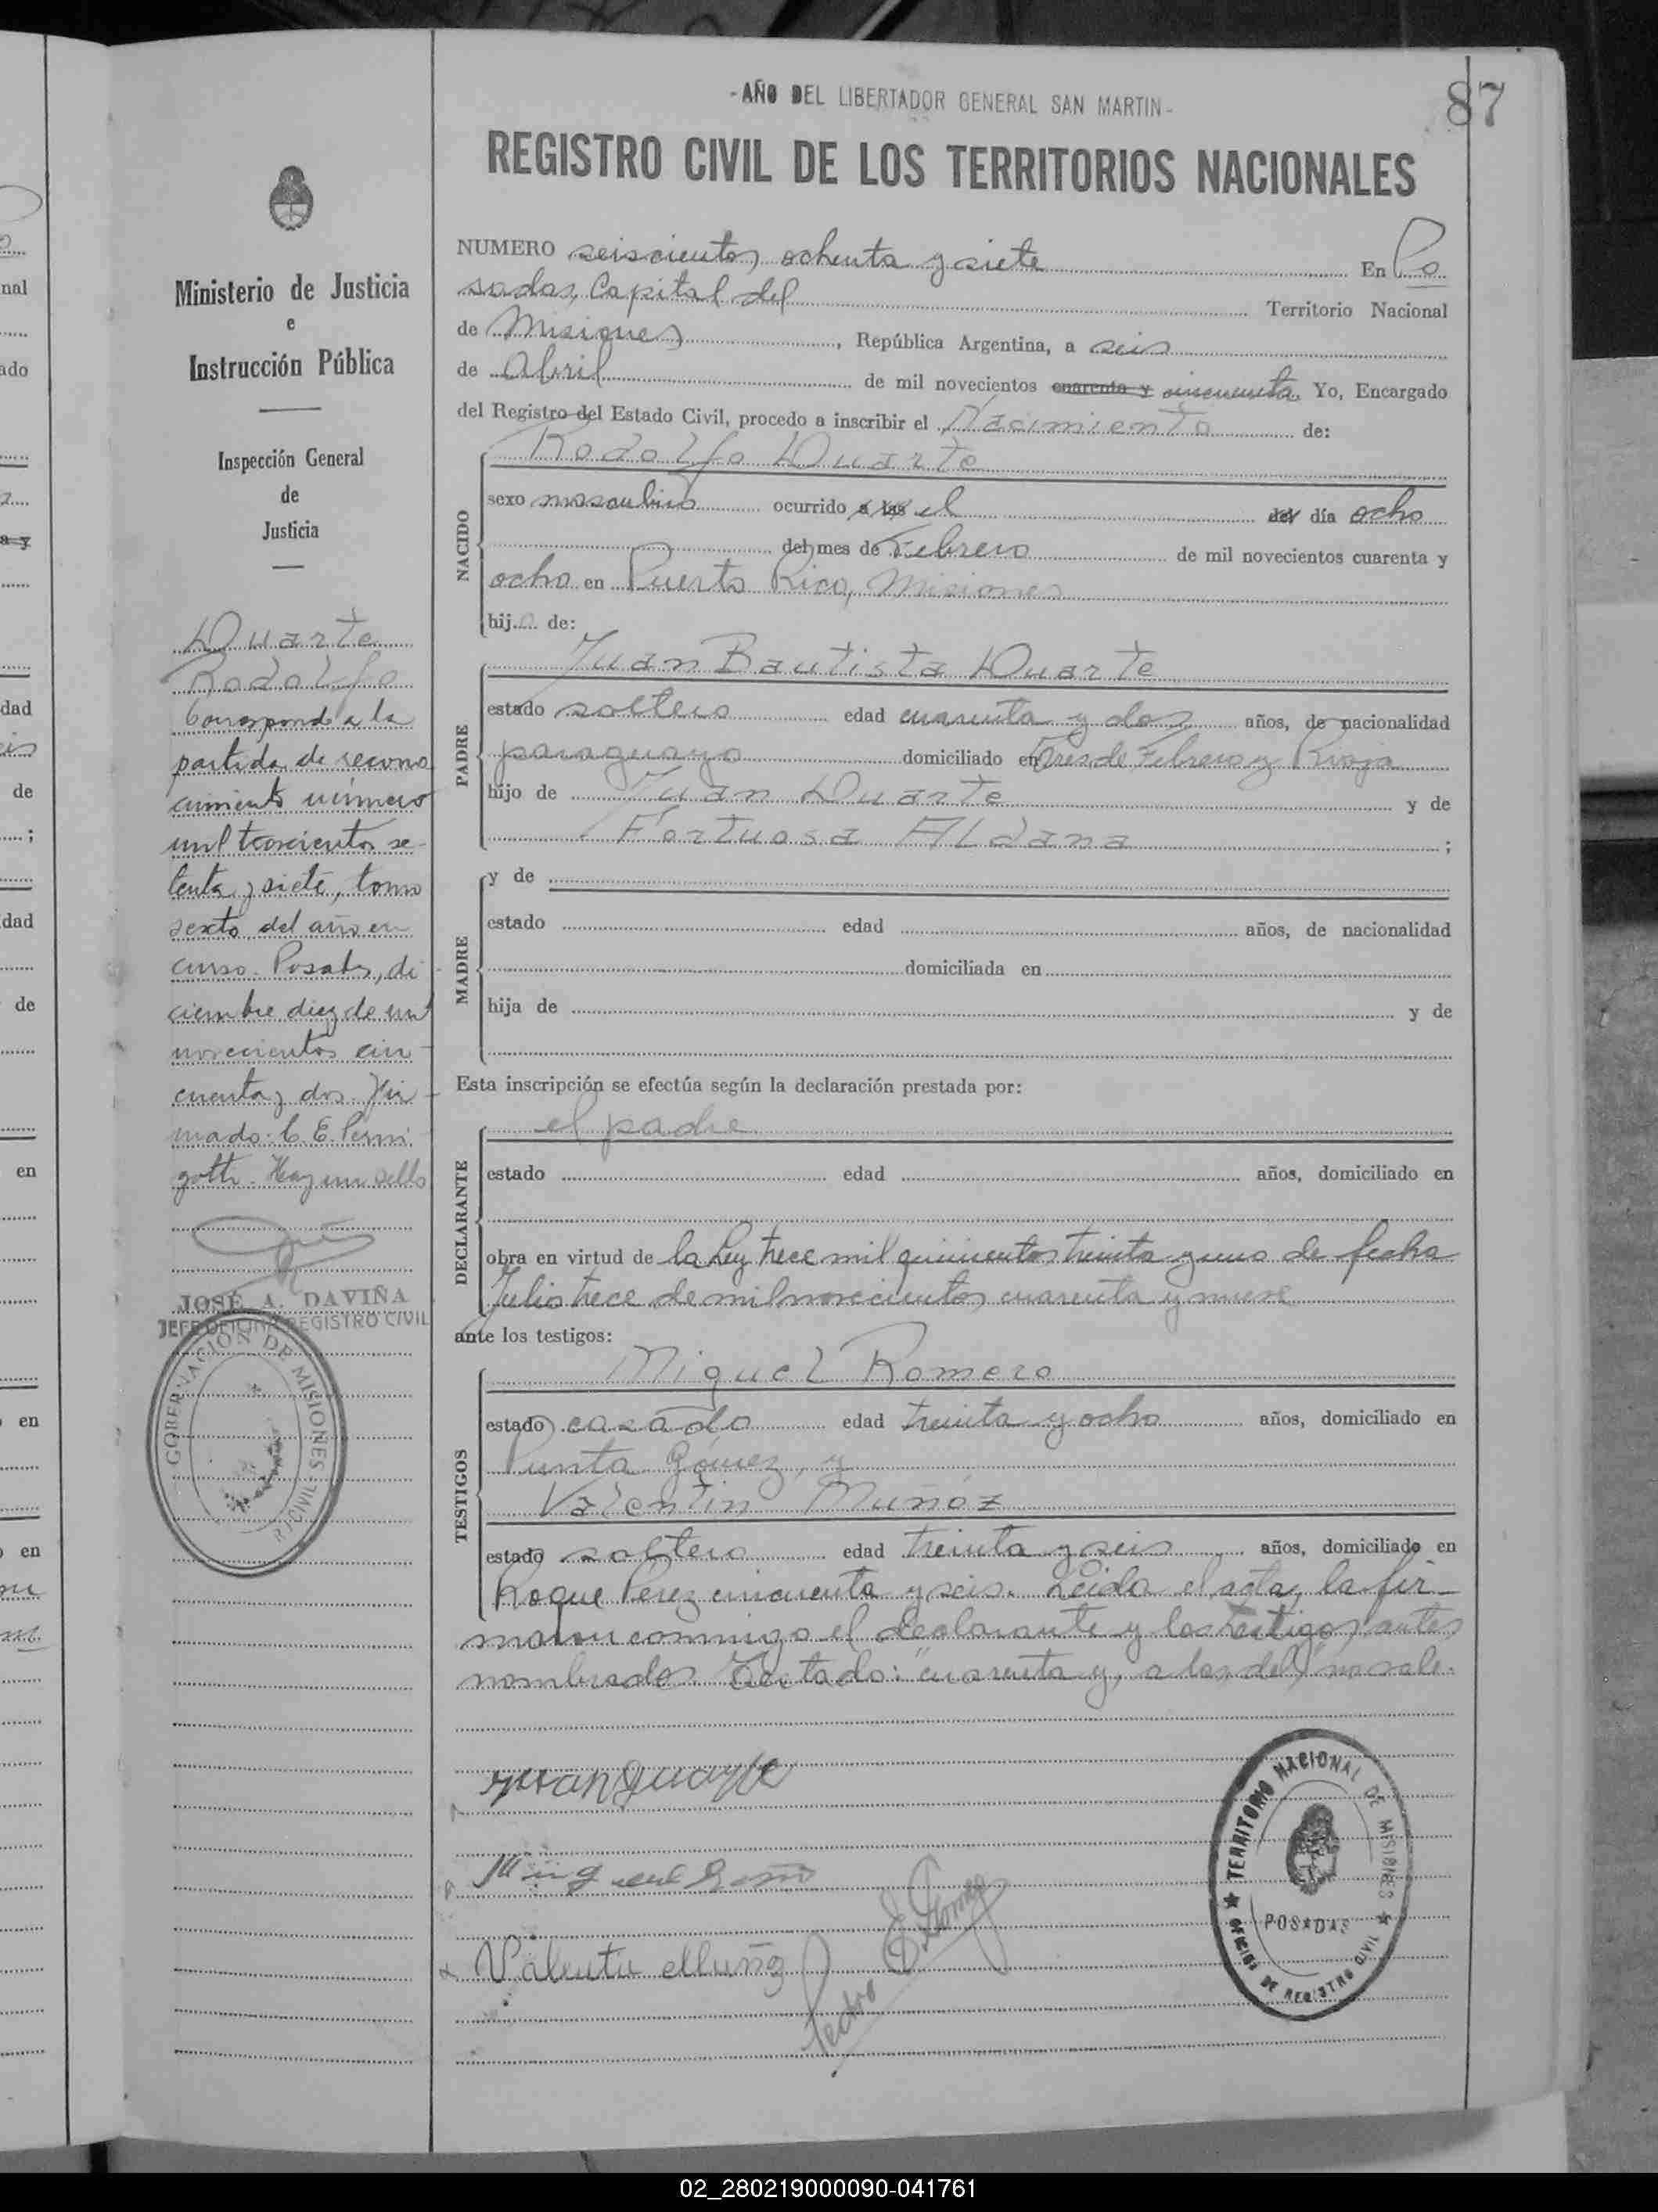 - AÑO DEL LIBERTADOR GENERAL SAN MARTIN -
87
REGISTRO CIVIL DE LOS TERRITORIOS NACIONALES
Ministerio de Justicia
e
Instrucción Pública
Inspección General
de
Justicia
Duarte
Rodolfo
Corresponde a la
partida de recono
cimiento número
mil trescientos se-
tenta y siete, tomo
sexto del año en
curso. Posadas, di
ciembre diez de mil
novecientos cin
cuenta y dos. Fir
mado: C. E. Permi
gotti. Hay un sello
JOSÉ A. DAVIÑA
JEFE OFICINA REGISTRO CIVIL
GOBERNACION DE MISIONES
R. CIVIL
NUMERO seiscientos ochenta y siete En Po
sadas, Capital del Territorio Nacional
de Misiones, República Argentina, a seis
de Abril de mil novecientos cuarenta y cincuenta Yo, Encargado
del Registro del Estado Civil, procedo a inscribir el Nacimiento de:
NACIDO
Rodolfo Duarte
sexo masculino ocurrido a las el del día ocho
del mes de Febrero de mil novecientos cuarenta y
ocho en Puerto Rico, Misiones
hijo de:
PADRE
Juan Bautista Duarte
estado soltero edad cuarenta y dos años, de nacionalidad
paraguayo domiciliado en Tres de Febrero y Rioja
hijo de Juan Duarte y de
Fortuosa Aldana ;
MADRE
y de
estado edad años, de nacionalidad
domiciliada en
hija de y de
Esta inscripción se efectúa según la declaración prestada por:
DECLARANTE
el padre
estado edad años, domiciliado en
obra en virtud de la Ley trece mil quinientos treinta y uno de fecha
Julio trece de mil novecientos cuarenta y nueve
ante los testigos:
TESTIGOS
Miguel Romero
estado casado edad treinta y ocho años, domiciliado en
Punta Gómez, y
Valentin Muñoz
estado soltero edad treinta y seis años, domiciliado en
Roque Pérez cincuenta y seis. Leída el acta, la fir-
maron conmigo el declarante y los testigos antes
nombrados. Testado: "cuarenta y, a las, del" no vale.
Juan Duarte
Valentin Muños
Pedro E. Gomez
TERRITORIO NACIONAL DE MISIONES
POSADAS
OFICINA DE REGISTRO CIVIL
nal
ado
a y
dad
de
;
dad
de
en
en
en
02_280219000090-041761